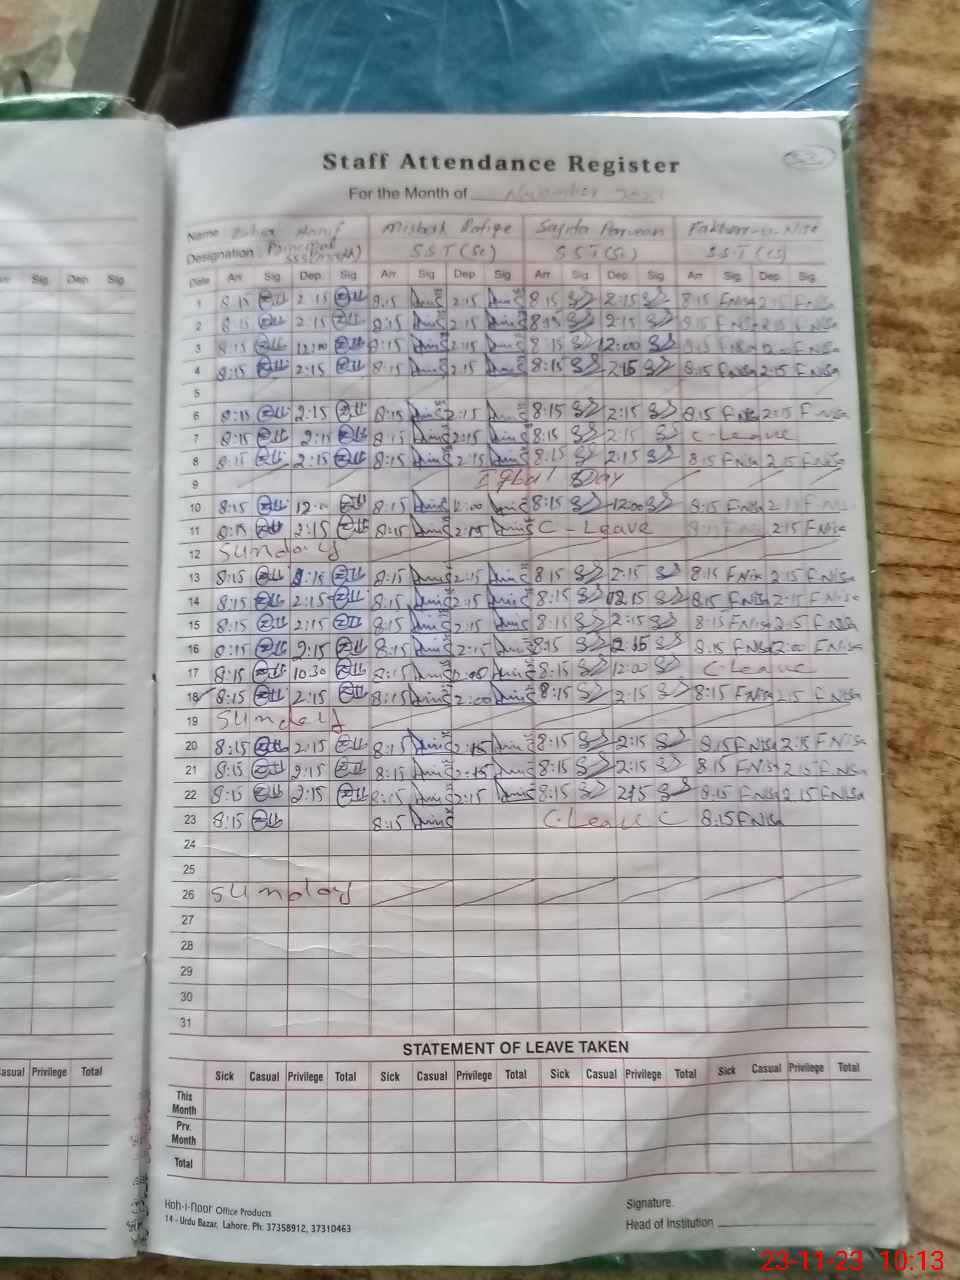 Staff Attendance Register
For the Month of November
Name Hanif Misbah Rafique Sajida Parveen Fakhar-u-Nisa
Designation Principal S.S.T (Sc) S.S.T (Sc) S.S.T (CS)
Date Arr Sig Dep Sig Arr Sig Dep Sig Arr Sig Dep Sig Arr Sig Dep Sig
Sig Dep Sig
1 8:15 2:15 8:15 2:15 8:15 2:15 8:15 FNisa 2:15 FNisa
2 8:15 2:15 8:15 2:15 8:15 2:15 8:15 FNisa 2:15 FNisa
3 8:15 12:00 8:15 2:15 8:15 12:00 8:15 FNisa FNisa
4 8:15 2:15 8:15 2:15 8:15 2:15 8:15 FNisa 2:15 FNisa
5
6 8:15 2:15 8:15 2:15 8:15 2:15 8:15 FNisa 2:15 FNisa
7 8:15 2:15 8:15 2:15 8:15 2:15 C-Leave
8 8:15 2:15 8:15 2:15 8:15 2:15 8:15 FNisa 2:15 FNisa
9 Iqbal Day
10 8:15 12:00 8:15 12:00 8:15 12:00 8:15 FNisa
11 8:15 2:15 8:15 2:15 C-Leave 2:15 FNisa
12 Sunday
13 8:15 8:15 2:15 8:15 2:15 8:15 FNisa 2:15 FNisa
14 8:15 2:15 8:15 2:15 8:15 8:15 FNisa 2:15 FNisa
15 8:15 2:15 8:15 2:15 8:15 2:15 8:15 FNisa 2:15 FNisa
16 8:15 2:15 8:15 2:15 8:15 8:15 FNisa 2:00 FNisa
17 8:15 10:30 8:15 8:15 12:00 C-Leave
18 8:15 2:15 8:15 2:00 8:15 2:15 8:15 FNisa 2:15 FNisa
19 Sunday
20 8:15 2:15 8:15 2:15 8:15 2:15 8:15 FNisa 2:15 FNisa
21 8:15 2:15 8:15 2:15 8:15 2:15 8:15 FNisa 2:15 FNisa
22 8:15 2:15 8:15 2:15 8:15 2:15 8:15 FNisa 2:15 FNisa
23 8:15 8:15 C-Leave C 8:15 FNisa
24
25
26 Sunday
27
28
29
30
31
STATEMENT OF LEAVE TAKEN
Sick Casual Privilege Total Sick Casual Privilege Total Sick Casual Privilege Total Sick Casual Privilege Total
Privilege Total
This Month
Prv. Month
Total
Koh-i-noor Office Products
14 - Urdu Bazar, Lahore. Ph: 37358912, 37310463
Signature.
Head of Institution
23-11-23 10:13